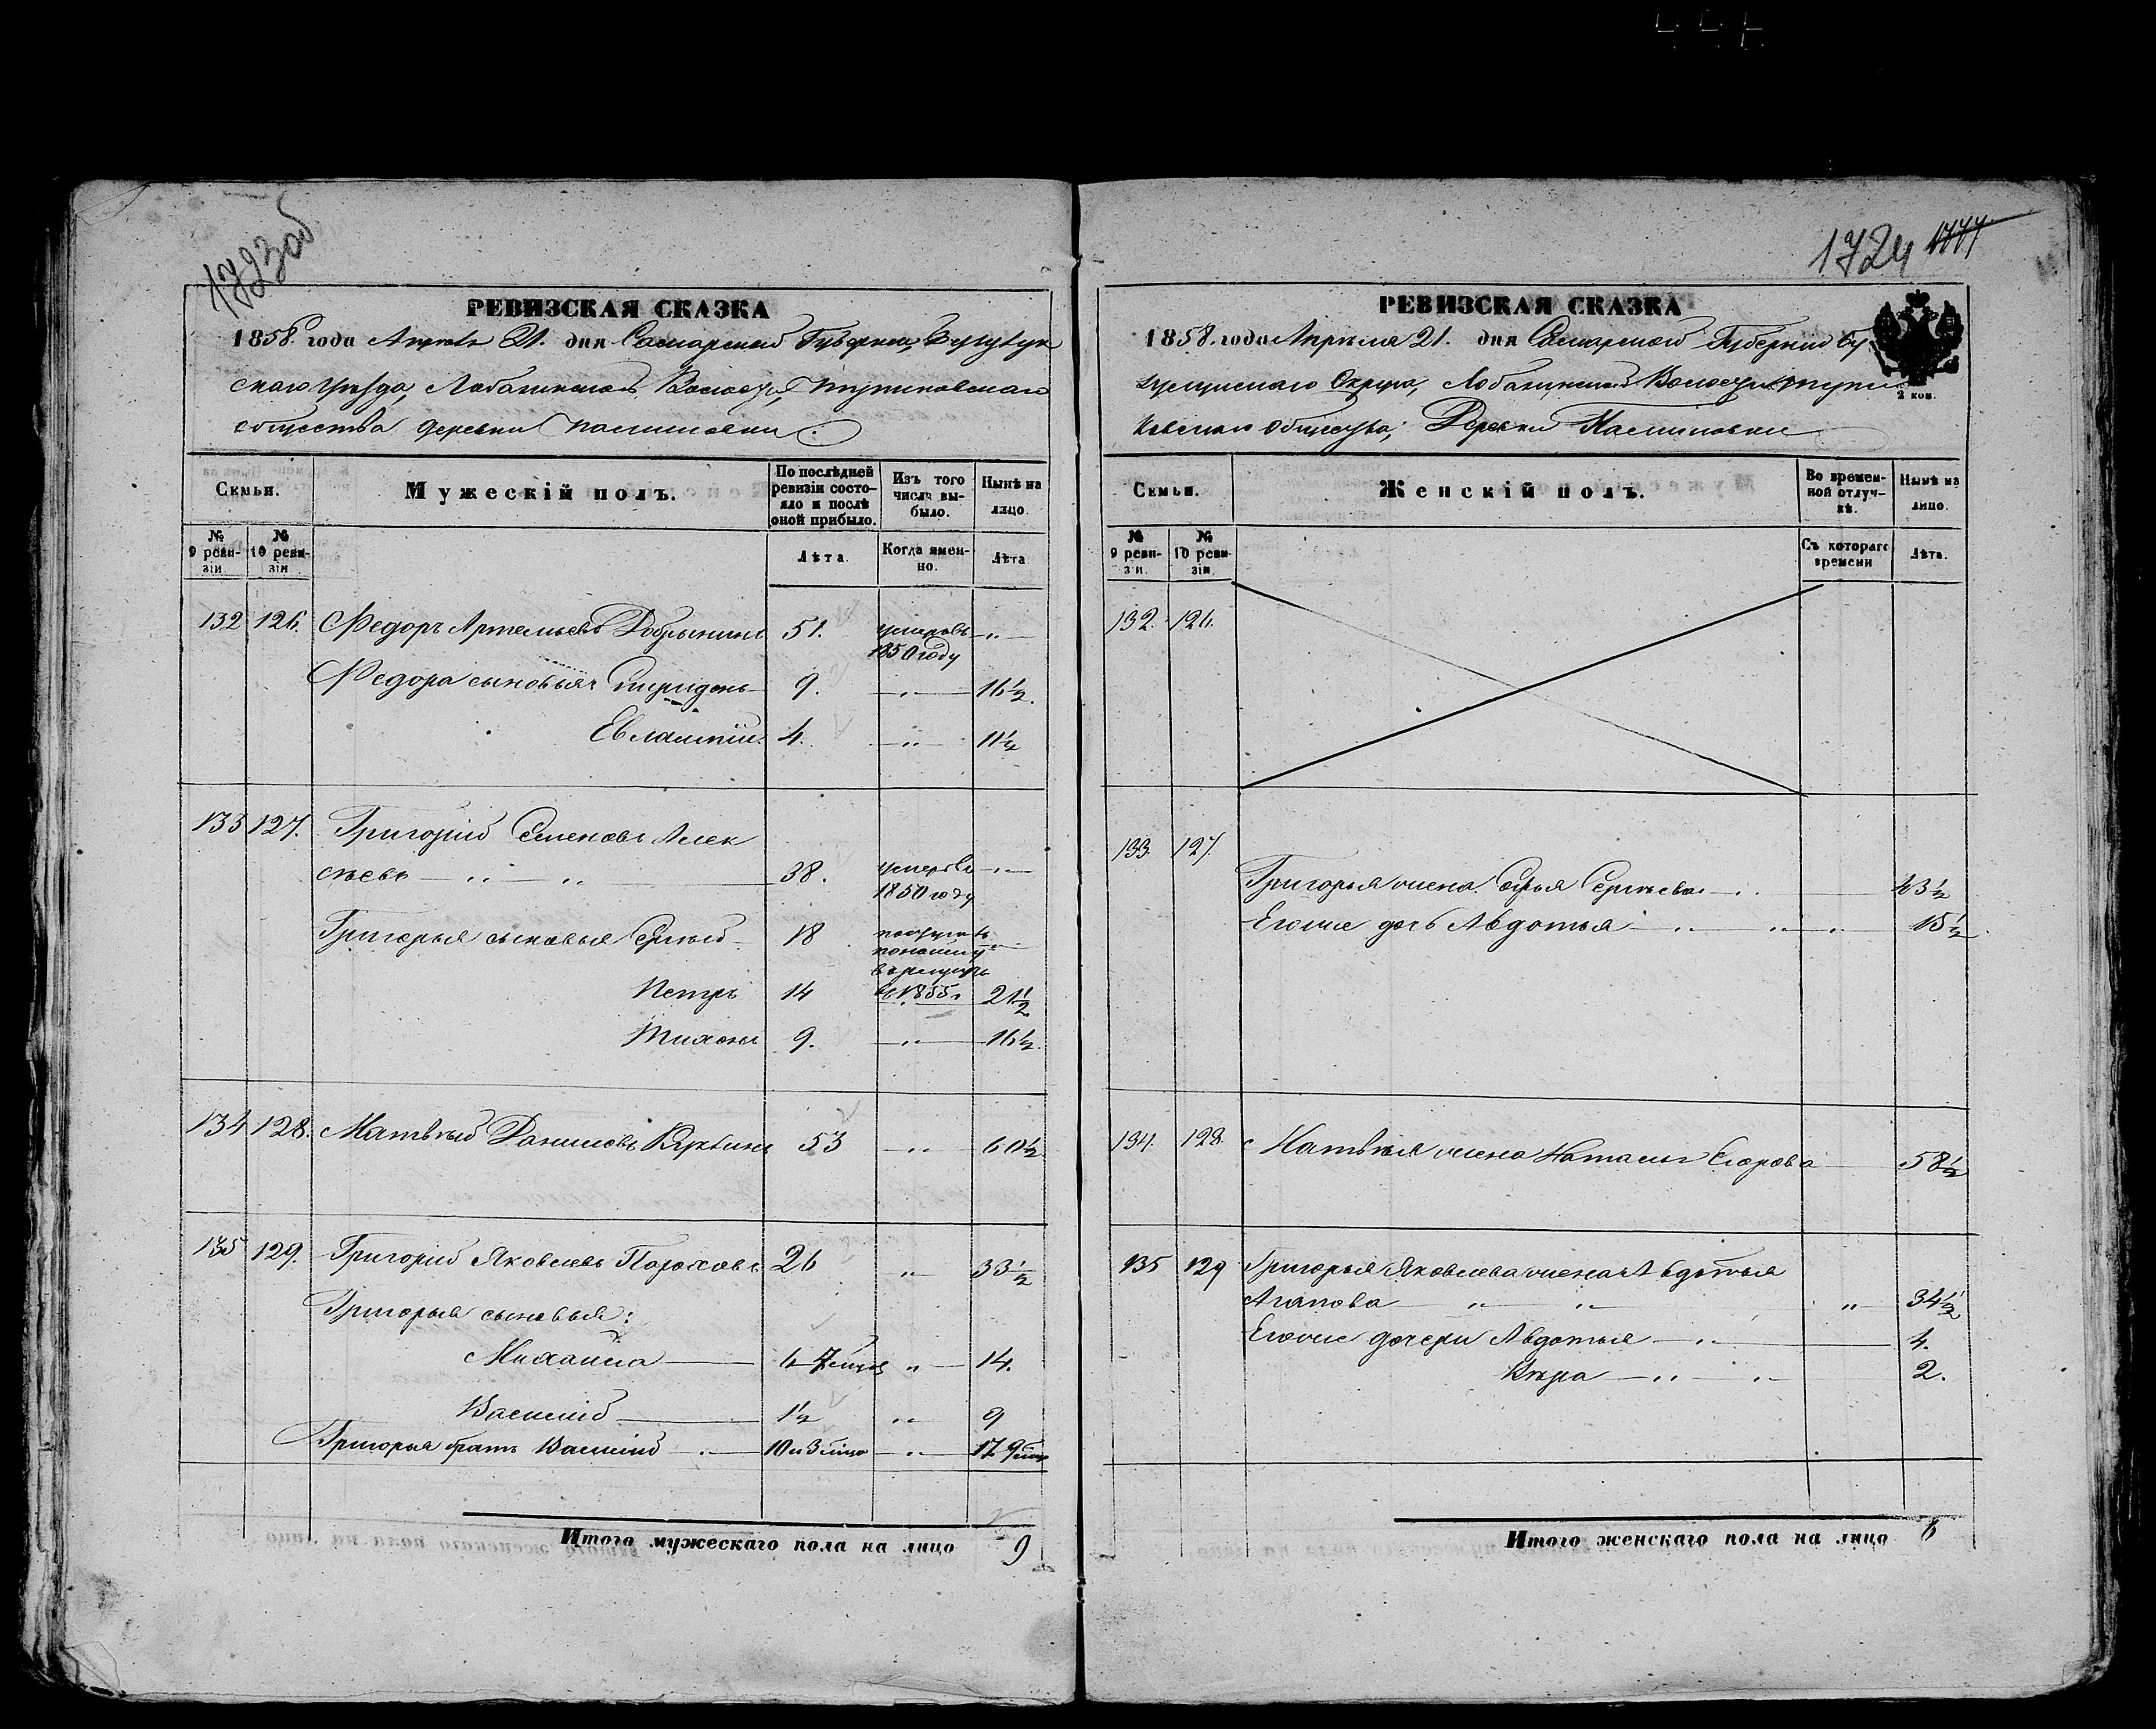 1723об
РЕВИЗСКАЯ СКАЗКА
1858 года Апреля 21. дня Самарской Губернии, Бугурус
скаго уѣзда, Лобазинской Волости,
общества деревни
Семьи.
Мужескій полъ.
По послѣдней ревизіи состояло и послѣ оной прибыло.
Изъ того числа выбыло.
Нынѣ на лицо.
№ 9 ревизіи
№ 10 ревизіи
Лѣта.
Когда именно.
Лѣта
132 126. Федоръ Артемьевъ Добрынинъ 51. умеръ въ 1850 году —„—
Федора сыновья Спиридонъ 9. —„— 16½.
Евлампій. 4. —„— 11½
133 127. Григорій Семеновъ Алек
сѣевъ — „ — „ — 38. умеръ въ 1850 году —„—
Григорья сыновья Сергѣй 18
Петръ 14 въ 1855 г 21½
Тихонъ 9. —„— 16½.
134 128. Матвѣй Даниловъ 53 —„— 60½
135 129. Григорій Яковлевъ Пороховъ 26 „ 33½
Григорья сыновья:
Михаила — „ — 14.
Василій — 1½ „ 9
Григорья братъ Василій — 10 и 3 мѣца —„— 17 9 мѣц
Итого мужескаго пола на лицо 9
1724 1777
РЕВИЗСКАЯ СКАЗКА
1858. года Апрѣля 21. дня Самарской Губерніи Бу
гурусланскаго Округа, Лобазинской Волости
Общества, Деревни
2 коп.
Семьи.
Женскій полъ.
Во временной отлучкѣ.
Нынѣ на лицо.
№ 9 ревизіи.
№ 10 ревизіи.
Съ котораго времени
Лѣта.
132. 126.
133. 127.
Григорья жена Софья Сергѣева — „ 43½
Егоже дочь Авдотья — „ — „ „ 15½
134. 128. Матвѣя жена Наталья Егорова — 58½
135 129 Григорья Яковлева жена Авдотья
Агапова — „ — „ — „ — 34½
Егоже дочери Авдотья — „ — 4.
Вѣра — „ — „ 2.
Итого женскаго пола на лицо 6